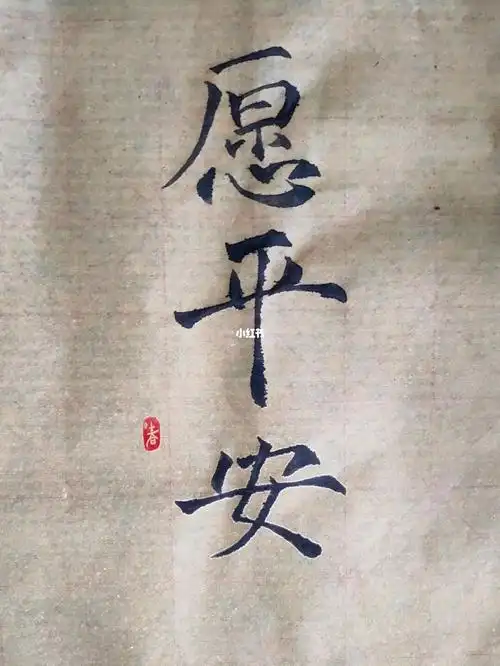 愿平安
小红书